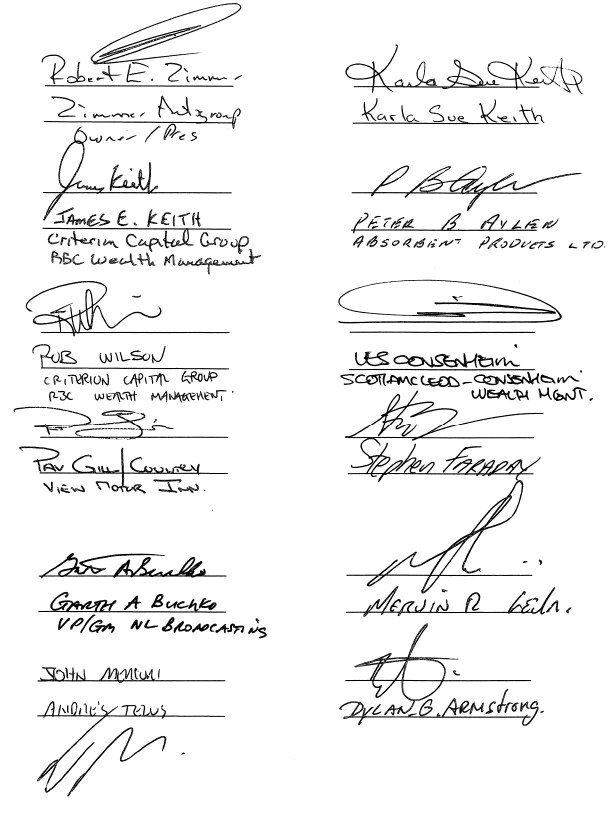 Robert E. Zimmer
Zimmer Autogroup
Owner / Pres
James Keith
JAMES E. KEITH
Criterium Capital Group
RBC Wealth Management
ROB WILSON
CRITERION CAPITAL GROUP
RBC WEALTH MANAGEMENT.
PAV GILL / COUNTRY
VIEW MOTOR INN.
Garth A Buchko
GARTH A BUCHKO
VP/GM NL BROADCASTING
JOHN
ANDRE'S TELUS
Karla Sue Keith
Karla Sue Keith
P B Aylen
PETER B. AYLEN
ABSORBENT PRODUCTS LTD.
LES CONSENHEIM
SCOTIAMCLEOD - CONSENHEIM
WEALTH MGNT.
Stephen FARADAY
MERVIN R
DYLAN G. ARMSTRONG.